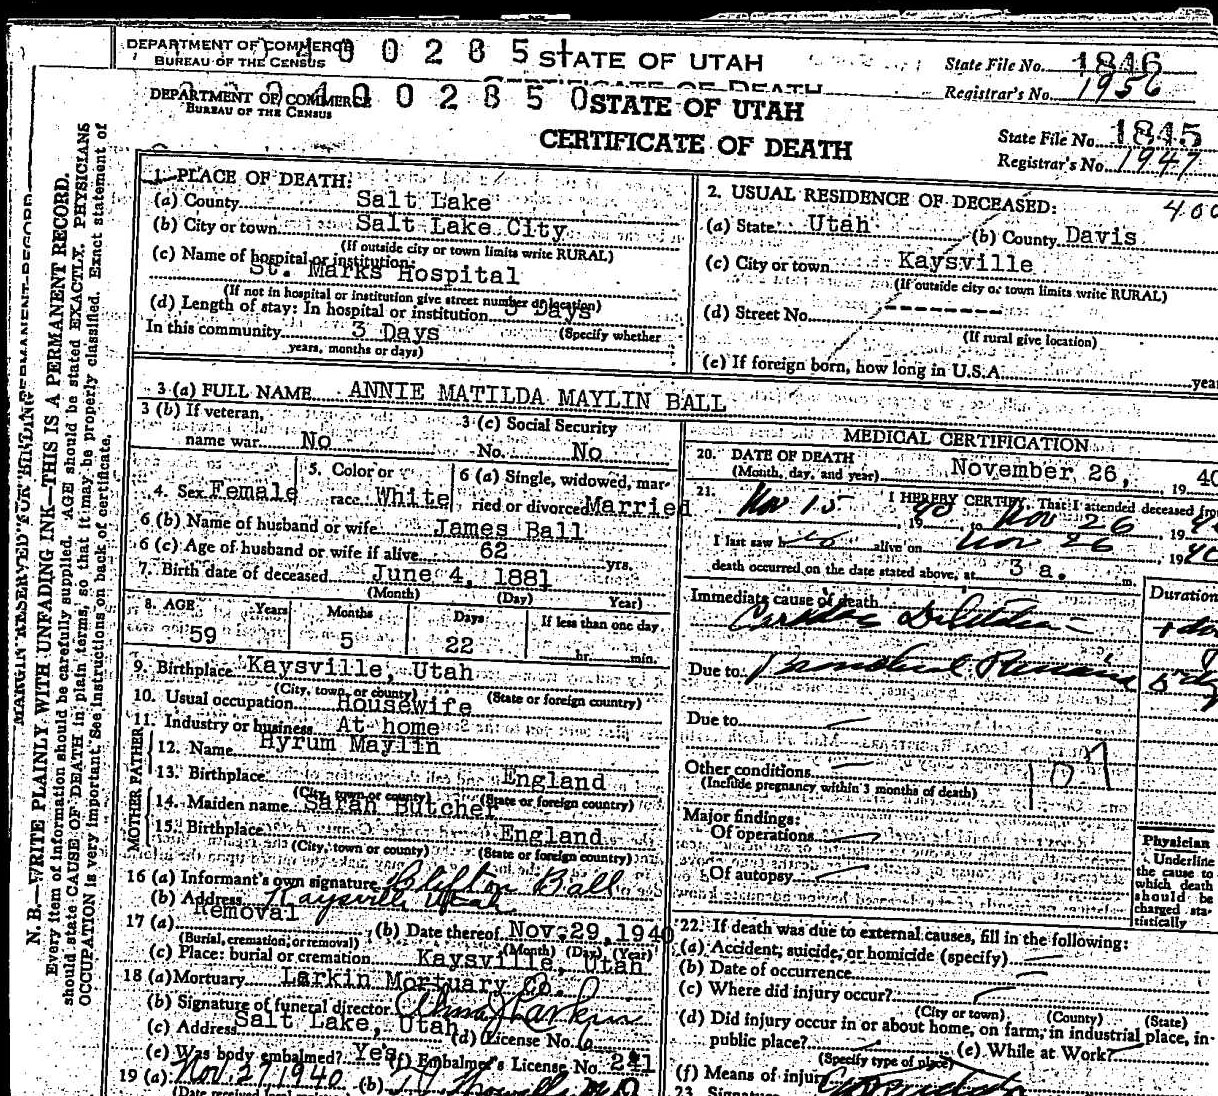 DEPARTMENT OF COMMERCE
BUREAU OF THE CENSUS
0 0 2 8 5
STATE OF UTAH
CERTIFICATE OF DEATH
State File No. 1846
Registrar's No. 1956
DEPARTMENT OF COMMERCE
BUREAU OF THE CENSUS
0 0 2 8 5 0
STATE OF UTAH
CERTIFICATE OF DEATH
State File No. 1845
Registrar's No. 1947
MARGIN RESERVED FOR BINDING
N. B.—WRITE PLAINLY WITH UNFADING INK—THIS IS A PERMANENT RECORD.
Every item of information should be carefully supplied. AGE should be stated EXACTLY. PHYSICIANS
should state CAUSE OF DEATH in plain terms, so that it may be properly classified. Exact statement of
OCCUPATION is very important. See instructions on back of certificate.
1. PLACE OF DEATH:
(a) County Salt Lake
(b) City or town Salt Lake City
(If outside city or town limits write RURAL)
(c) Name of hospital or institution:
St. Marks Hospital
(If not in hospital or institution give street number or location)
(d) Length of stay: In hospital or institution 3 Days
In this community 3 Days (Specify whether
years, months or days)
2. USUAL RESIDENCE OF DECEASED:
400
(a) State Utah (b) County Davis
(c) City or town Kaysville
(If outside city or town limits write RURAL)
(d) Street No. ---------
(If rural give location)
(e) If foreign born, how long in U.S.A. year
3 (a) FULL NAME ANNIE MATILDA MAYLIN BALL
3 (b) If veteran,
name war No
3 (c) Social Security
No. No
4. Sex Female
5. Color or
race White
6 (a) Single, widowed, mar-
ried or divorced Married
6 (b) Name of husband or wife James Ball
6 (c) Age of husband or wife if alive 62 yrs.
7. Birth date of deceased June 4, 1881
(Month) (Day) Year)
8. AGE Years Months Days If less than one day
59 5 22 hr. min.
9. Birthplace Kaysville, Utah
(City, town, or county) (State or foreign country)
10. Usual occupation Housewife
11. Industry or business At home
FATHER
12. Name Hyrum Maylin
13. Birthplace England
(City, town or county) (State or foreign country)
MOTHER
14. Maiden name Sarah Butcher
15. Birthplace England
(City, town or county) (State or foreign country)
16 (a) Informant's own signature Clifton Ball
(b) Address Kaysville Utah
17 (a) Removal (b) Date thereof Nov. 29, 1940
(Burial, cremation, or removal) (Month) (Day) (Year)
(c) Place: burial or cremation Kaysville, Utah
18 (a) Mortuary Larkin Mortuary Co.
(b) Signature of funeral director Larkin
(c) Address Salt Lake, Utah (d) License No.
(e) Was body embalmed? Yes (f) Embalmer's License No. 241
19 (a) Nov. 27 1940 (b)
MEDICAL CERTIFICATION
20. DATE OF DEATH
(Month, day, and year) November 26, 1940
21. I HEREBY CERTIFY, That I attended deceased from
Nov 15 1940 to Nov 26 1940
I last saw h alive on Nov 26 1940
death occurred on the date stated above, at 3 a. m.
Immediate cause of death Duration
Cardiac Dilatation
Due to
Due to
Other conditions
(Include pregnancy within 3 months of death)
107
Major findings:
Of operations
Of autopsy
Physician
Underline
the cause to
which death
should be
charged sta-
tistically
22. If death was due to external causes, fill in the following:
(a) Accident, suicide, or homicide (specify)
(b) Date of occurrence
(c) Where did injury occur?
(City or town) (County) (State)
(d) Did injury occur in or about home, on farm, in industrial place, in
public place? (e) While at Work?
(Specify type of place)
(f) Means of injury
23. Signature